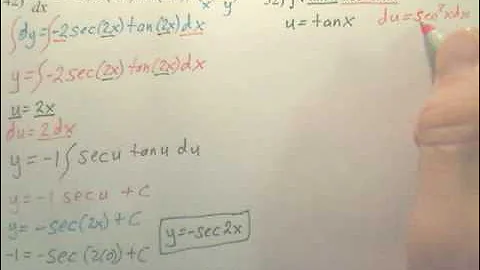 dx x y
∫dy=∫-2sec(2x)tan(2x)dx
y=∫-2sec(2x)tan(2x)dx
u=2x
du=2dx
y=-1∫secu tanu du
y=-1 secu +C
y=-sec(2x)+C
-1=-sec(2(0))+C
y=-sec2x
u=tanx du=sec²xdx